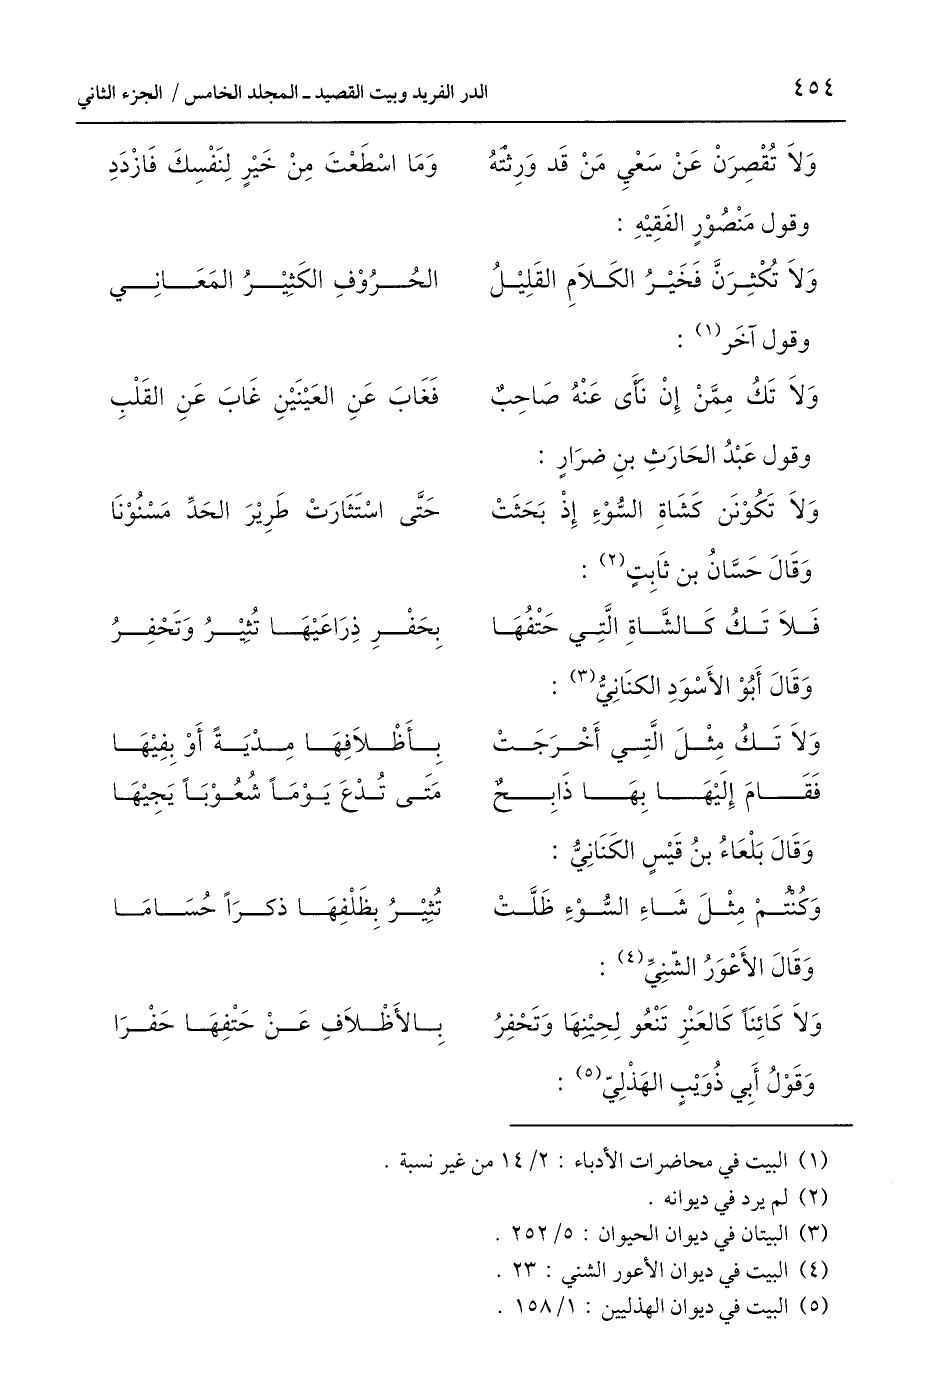 ٤٥٤ الدر الفريد وبيت القصيد ـ المجلد الخامس / الجزء الثاني
وَلاَ تُقْصِرَنْ عَنْ سَعْيِ مَنْ قَد وَرِثْتَهُ وَمَا اسْطَعْتَ مِنْ خَيْرٍ لِنَفْسِكَ فَازْدَدِ
وقول مَنْصُوْرٍ الفَقِيْهِ :
وَلاَ تُكْثِرَنَّ فَخَيْرُ الكَلاَمِ القَلِيْلُ الحُرُوْفِ الكَثِيْرُ المَعَانِي
وقول آخَر(١) :
وَلاَ تَكُ مِمَّنْ إِنْ نَأَى عَنْهُ صَاحِبٌ فَغَابَ عَنِ العَيْنَيْنِ غَابَ عَنِ القَلْبِ
وقول عَبْدُ الحَارَثِ بنِ ضرَارٍ :
وَلاَ تَكُوْنَن كَشَاةِ السُّوْءِ إِذْ بَحَثَتْ حَتَّى اسْتَثَارَتْ طَرِيْرَ الحَدِّ مَسْنُوْنَا
وَقَالَ حَسَّانُ بن ثَابِتٍ(٢) :
فَلاَ تَكُ كَالشَّاةِ الَّتِي حَتْفُهَا بِحَفْرِ ذِرَاعَيْهَا تُثِيْرُ وَتَحْفِرُ
وَقَالَ أَبُوْ الأَسْوَدِ الكنَانِيُّ(٣) :
وَلاَ تَكُ مِثْلَ الَّتِي أَخْرَجَتْ بِأَظْلاَفِهَا مِدْيَةً أَوْ بِفِيْهَا
فَقَامَ إِلَيْهَا بِهَا ذَابِحٌ مَتَى تُدْعَ يَوْمَاً شُعُوْبَاً يَجِيْهَا
وَقَالَ بَلْعَاءُ بنُ قَيْسٍ الكَنَانِيُّ :
وَكُنْتُمْ مِثْلَ شَاءِ السُّوْءِ ظَلَّتْ تُثِيْرُ بِظَلْفِهَا ذكرَاً حُسَامَا
وَقَالَ الأَعْوَرُ الشّنِيِّ(٤) :
وَلاَ كَائِنَاً كَالعَنْزِ تَنْعُو لِحِيْنِهَا وَتَحْفِرُ بِالأَظْلاَفِ عَنْ حَتْفِهَا حَفْرَا
وَقَوْلُ أَبِي ذُوَيْبٍ الهَذْلِيّ(٥) :
(١) البيت في محاضرات الأدباء : ٢/ ١٤ من غير نسبة .
(٢) لم يرد في ديوانه .
(٣) البيتان في ديوان الحيوان : ٥/ ٢٥٢ .
(٤) البيت في ديوان الأعور الشني : ٢٣ .
(٥) البيت في ديوان الهذليين : ١/ ١٥٨ .